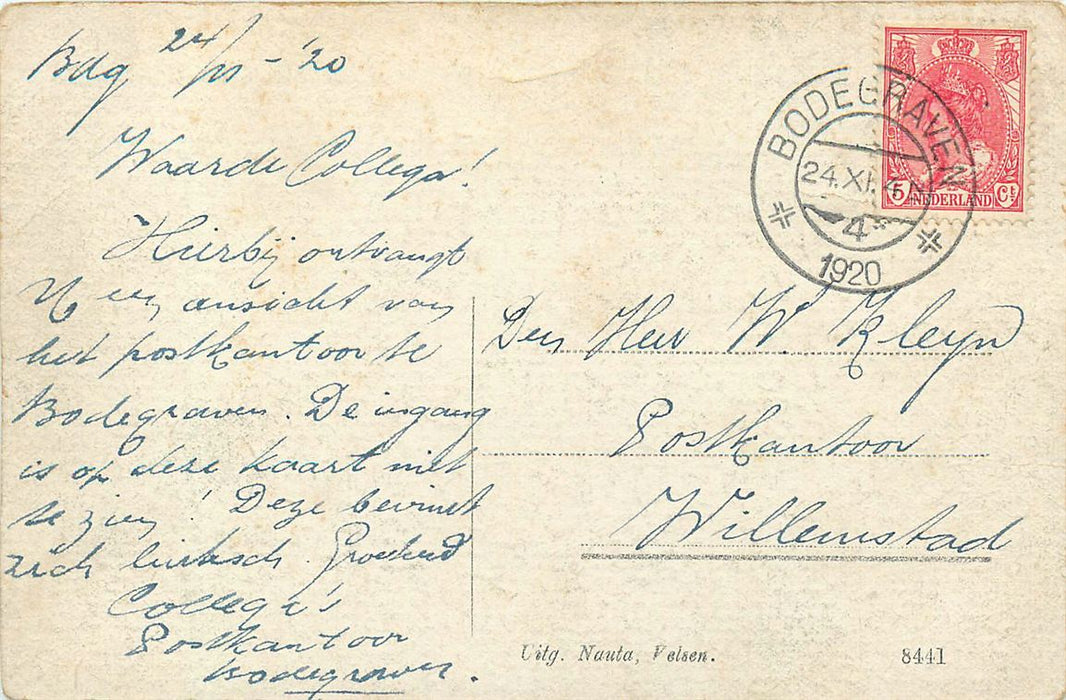 Bdg 24/XI - '20
Waarde Collega!
Hierbij ontvangt
U een ansicht van
het postkantoor te
Bodegraven. De ingang
is op deze kaart niet
te zien! Deze bevindt
zich linksch. Groetend
Collega's
Postkantoor
Bodegraven.
BODEGRAVEN
24.XI. 4-
4
1920
5 NEDERLAND Ct
Den Heer W. Kleyn
Postkantoor
Willemstad
Uitg. Nauta, Velsen.
8441